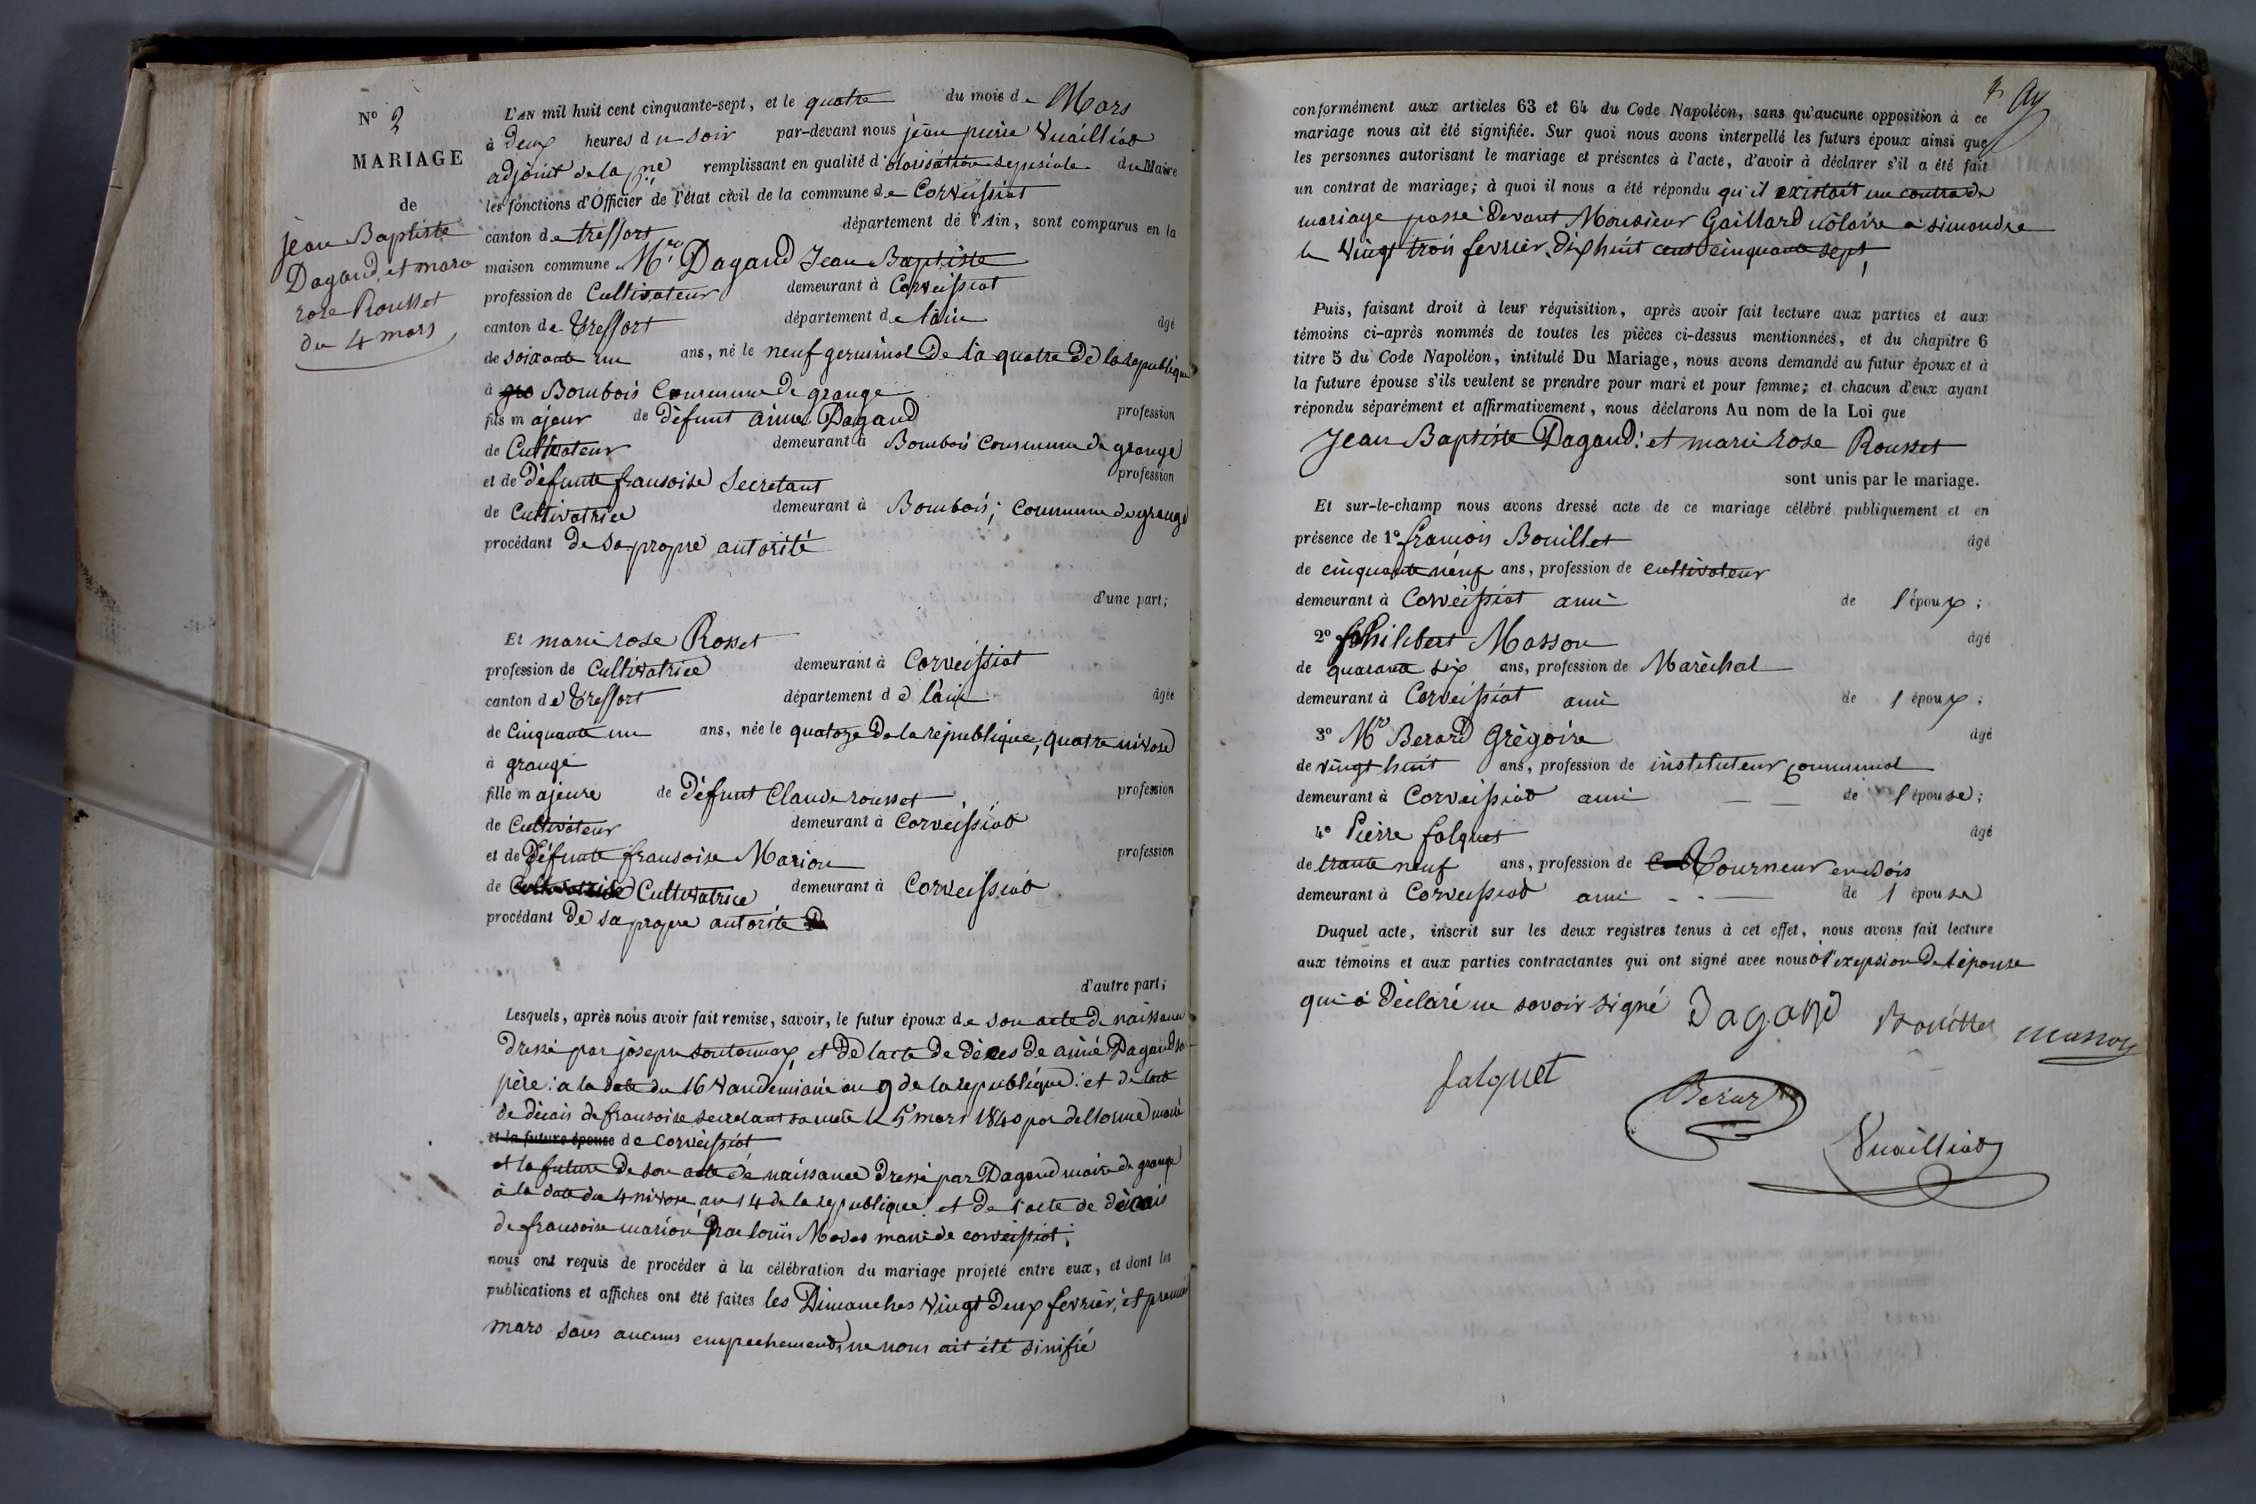 N° 2
MARIAGE
de
jean Baptiste
Dagand et marie
rose Rousset
du 4 mars
L'AN mil huit cent cinquante-sept, et le quatre du mois de Mars
à deux heures du soir par-devant nous jean pierre Vuailliat
adjoint de la remplissant en qualité d' du Maire
les fonctions d'Officier de l'état civil de la commune de Corveissiat
canton de treffort département de l'Ain, sont comparus en la
maison commune Mr Dagand Jean Baptiste
profession de Cultivateur demeurant à Corveissiat
canton de Treffort département de l'ain âgé
de soixante un ans, né le neuf germinal de l'a quatre de la republique
à Bombois Commune de grange
fils majeur de défunt aimé Dagand profession
de Cultivateur demeurant à Bombois commune de grange
et de défunte fransoise Secretant profession
de Cultivatrice demeurant à Bombois; Commune de grange
procédant de sa propre autorité
d'une part;
Et marie rose Rosset
profession de Cultivatrice demeurant à Corveissiat
canton de Treffort département de l'ain âgée
de Cinquante un ans, née le quatoze de la république, quatre nivose
à grange
fille majeure de défunt Claude rousset profession
de Cultivateur demeurant à Corveissiat
et de défunte fransoise Marion profession
de Cultivatrice Cultivatrice demeurant à Corveissiat
procédant de sa propre autorité
d'autre part;
Lesquels, après nous avoir fait remise, savoir, le futur époux de son acte de naissance
dressé par joseph et de lacte de déces de aimé Dagand so
père: a la date du 16 Vandémiaire an 9 de la republique: et de lacte
de décais de fransoise secretant sa mère le 5 mars 1840 par delorme maire
et la future épouse de Corveissiat
et la future de son acte de naissance dressé par Dagand maire de grange
à la date du 4 nivose an 14 de la republique et de l'acte de décais
de fransoise marion par louis maire de corveissiat;
nous ont requis de procéder à la célébration du mariage projeté entre eux, et dont les
publications et affiches ont été faites les Dimanches Vingt deux fevrier, et premier
mars sans aucuns empechements ne nous ait été sinifié
conformément aux articles 63 et 64 du Code Napoléon, sans qu'aucune opposition à ce
mariage nous ait été signifiée. Sur quoi nous avons interpellé les futurs époux ainsi que
les personnes autorisant le mariage et présentes à l'acte, d'avoir à déclarer s'il a été fait
un contrat de mariage; à quoi il nous a été répondu qu'il existait un contra de
mariage passé devant Monsieur Gaillard notaire a simandre
le Vingt trois fevrier dix huit cent cinquante sept,
Puis, faisant droit à leur réquisition, après avoir fait lecture aux parties et aux
témoins ci-après nommés de toutes les pièces ci-dessus mentionnées, et du chapitre 6
titre 5 du Code Napoléon, intitulé Du Mariage, nous avons demandé au futur époux et à
la future épouse s'ils veulent se prendre pour mari et pour femme; et chacun d'eux ayant
répondu séparément et affirmativement, nous déclarons Au nom de la Loi que
Jean Baptiste Dagand: et marie rose Rousset
sont unis par le mariage.
Et sur-le-champ nous avons dressé acte de ce mariage célébré publiquement et en
présence de 1° francois Bouillet âgé
de cinquante neuf ans, profession de cultivateur
demeurant à Corveissiat ami de l'époux;
2° Philibert Masson âgé
de quarante six ans, profession de Maréchal
demeurant à Corveissiat ami de l époux;
3° Mr Berard Grégoire âgé
de vingt huit ans, profession de instituteur communal
demeurant à Corveissiat ami de l épouse;
4° Pierre falquet âgé
de trante neuf ans, profession de Tourneur en bois
demeurant à Corveissiat ami de l épouse
Duquel acte, inscrit sur les deux registres tenus à cet effet, nous avons fait lecture
aux témoins et aux parties contractantes qui ont signé avec nous à l'exepsion de l'épouse
qui à déclaré ne savoir signé Dagand Bouillet masson
falquet
Berard
Vuailliat